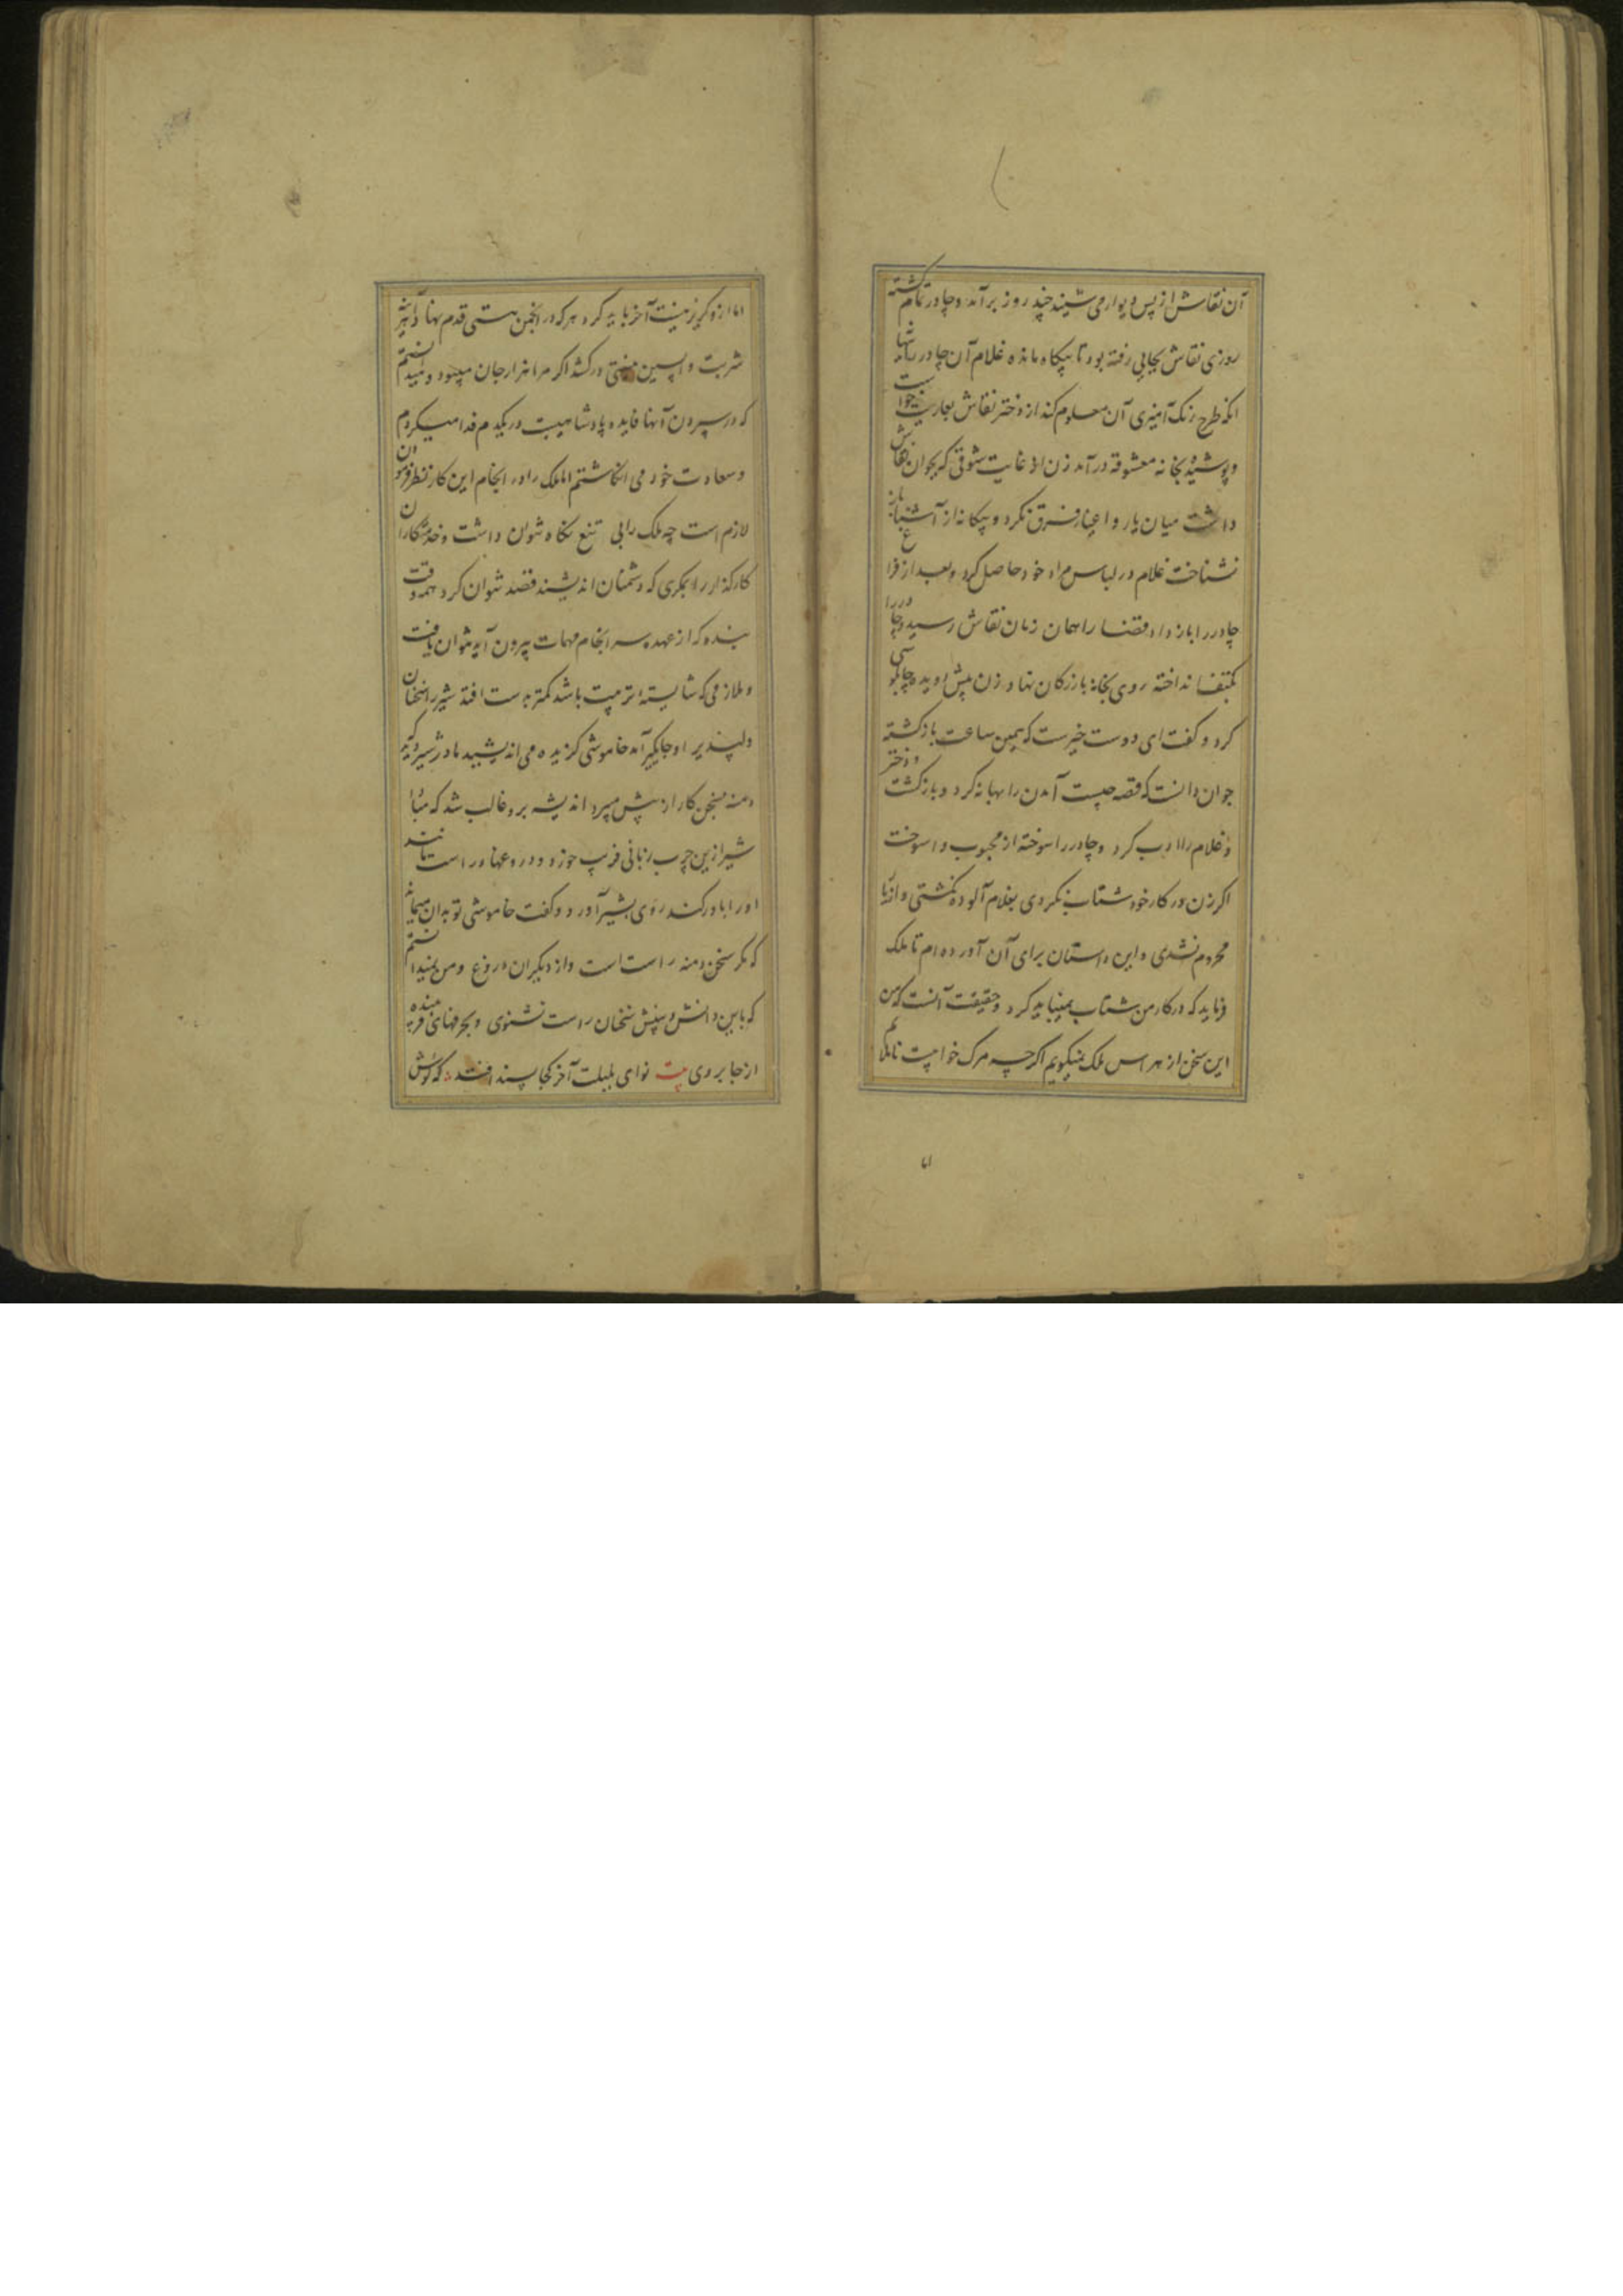 آن نقاش از پس دیوار می شنید چند روز برآمد و چادر تمام گشته
روزی نقاش بجایی رفته بود تا بیکاه مانده غلام آن چادر را بها
انکه طرح رنک آمیزی آن معلوم کند از دختر نقاش بعاریت خواست
و پوشیده بخانه معشوقه درآمد زن از غایت شوقی که بجوان نقاش
داشت میان یار و اغیار فرق نکرد و بیکانه از آشنا باز
نشناخت غلام در لباس مراد خود حاصل کرد و بعد از فراغ
چادر را باز داد قضا را همان زمان نقاش رسید و چادر را
بکتف انداخته روی بخانه بازرکان نهاد زن پیش دوید و چاپلوسی
کرد و کفت ای دوست خیرست که همین ساعت باز کشته
جوان دانست که قصه چیست آمدن را بهانه کرد و بازکشت و دختر
و غلام را ادب کرد و چادر را سوخته از محبوب وا سوخت
اکر زن در کار خود شتاب نکردی بغلام آلوده نکشتی و از یار
محروم نشدی و این داستان برای آن آورده ام تا ملک
فرماید که در کار من شتاب نمیباید کرد و حقیقت آنست که من
این سخن از هراس ملک نمیکویم اکرچه مرک خوابیست ناملایم
اما
اما از و کریز نیست آخر باید کرد هر که در انجمن هستی قدم نهاد آخر
شربت واپسین نیستی در کشد اکر مرا هزار جان میبود و میدانستم
که در سپردن آنها فایده پادشاهیست در یکدم فدا میکردم
و سعادت خود می انکاشتم اما ملک را در انجام این کار نظر فرمودن
لازم است چه ملک را بی تیغ نکاه نتوان داشت و خدمتکاران
کارکذار را بمکری که دشمنان اندیشند قصد نتوان کرد همه وقت
بنده که از عهده سرانجام مهمات بیرون آید نتوان یافت
و ملازمی که شایسته تربیت باشد کمتر بدست افتد شیر را سخنان
دلپذیر او جایکیر آمد خاموشی کزیده می اندیشید مادر شیر دید که
دمنه بسخن کار از پیش میبرد اندیشه برو غالب شد که مبادا
شیر ازین چرب زبانی فریب خورد و دروغها را راست مانند
او را باور کند روی بشیر آورد و کفت خاموشی تو بدان میماند
که مکر سخن دمنه راست است و از دیکران دروغ و من نمیدانستم
که باین دانش و بینش سخنان راست نشنوی و بحرفهای فریبنده
از جا بروی بیت نوای بلبلت آخر کجا پسند افتد که کوش